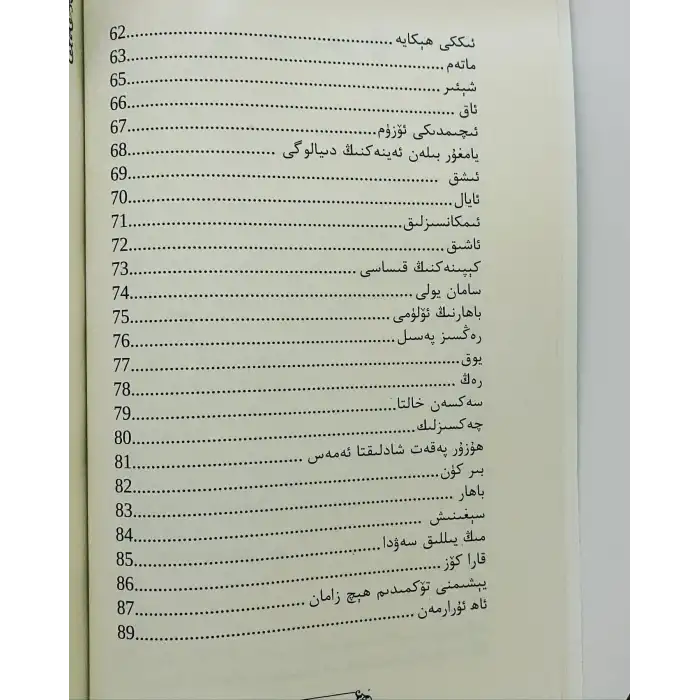 ئىككى ھېكايە........................................62
ماتەم........................................63
شېئىر........................................65
ئاق........................................66
ئىچىمدىكى ئۆزۈم........................................67
يامغۇر بىلەن ئەينەكنىڭ دىيالوگى........................................68
ئىشق........................................69
ئايال........................................70
ئىمكانسىزلىق........................................71
ئاشىق........................................72
كېپىنەكنىڭ قىساسى........................................73
سامان يولى........................................74
باھارنىڭ ئۆلۈمى........................................75
رەڭسىز پەسىل........................................76
يوق........................................77
رەڭ........................................78
سەكسەن خالتا........................................79
چەكسىزلىك........................................80
ھۇزۇر پەقەت شادلىقتا ئەمەس........................................81
بىر كۈن........................................82
باھار........................................83
سېغىنىش........................................84
مىڭ يىللىق سەۋدا........................................85
قارا كۆز........................................86
يېشىمنى تۆكمىدىم ھېچ زامان........................................87
ئاھ ئۇرارمەن........................................89